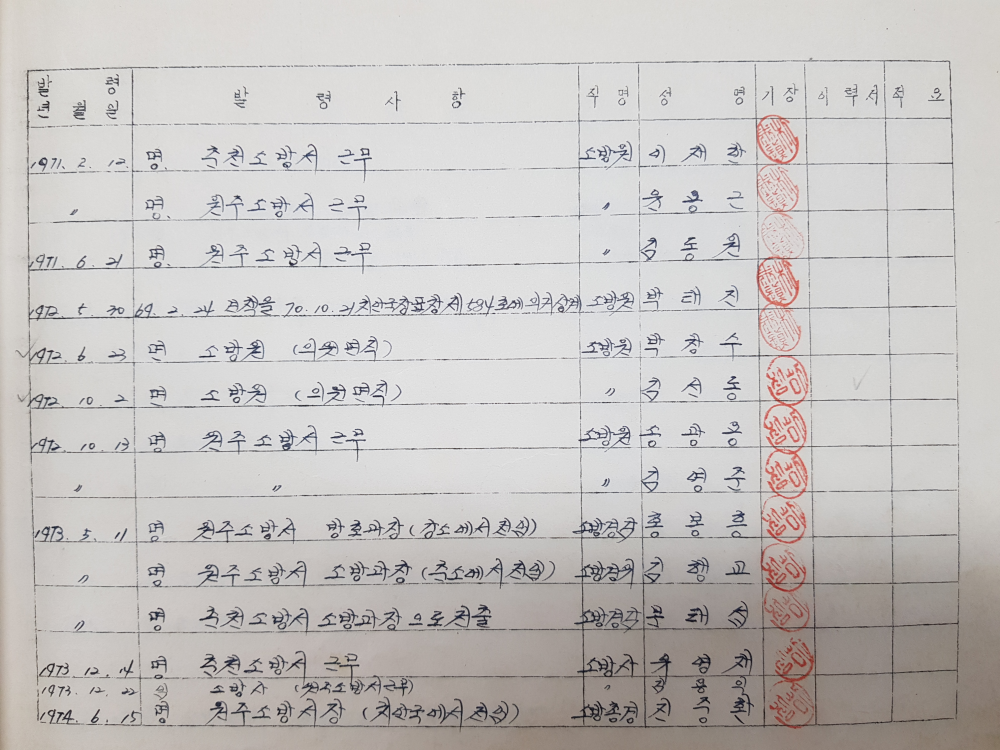 발령 년월일 발령사항 직명 성명 기장 이력서 적요
1971. 2. 12. 명. 춘천소방서 근무 소방원 이재한
〃 명. 원주소방서 근무 〃 윤용근
1971. 6. 21 명. 원주소방서 근무 〃 김동원
1972. 5. 30 69. 2. 24 견책을 70. 10. 21 치안국장표창 제584호에 의거상계 소방원 박태진
1972. 6. 23 면 소방원 (의원면직) 소방원 박창수
1972. 10. 2 면 소방원 (의원면직) 〃 김선동
1972. 10. 13 명 원주소방서 근무 소방원 송광용
〃 〃 〃 김영준
1973. 5. 11 명 원주소방서 방호과장 (강소에서 전입) 소방경 홍봉흠
〃 명 원주소방서 소방과장 (춘소에서 전입) 소방경위 김행교
〃 명 춘천소방서 소방과장으로 전출 소방경 문태섭
1973. 12. 14 명 춘천소방서 근무 소방사 우영재
1973. 12. 22 소방사 (원주소방서근무) 〃 김용
1974. 6. 15 명 원주소방서장 (치안국에서 전입) 소방총경 진종환